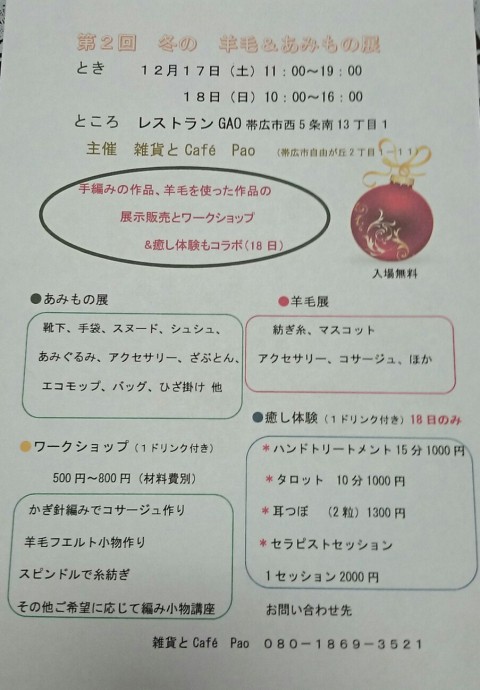 第２回　冬の　羊毛＆あみもの展
とき　１２月１７日（土）１１：００～１９：００
１８日（日）１０：００～１６：００
ところ　レストランGAO 帯広市西５条南13丁目1
主催　雑貨とCafé　Pao　（帯広市自由が丘２丁目１－１１）
手編みの作品、羊毛を使った作品の
展示販売とワークショップ
&癒し体験もコラボ（18日）
入場無料
●あみもの展
靴下、手袋、スヌード、シュシュ、
あみぐるみ、アクセサリー、ざぶとん、
エコモップ、バッグ、ひざ掛け 他
●羊毛展
紡ぎ糸、マスコット
アクセサリー、コサージュ、ほか
●ワークショップ（１ドリンク付き）
500円～800円（材料費別）
かぎ針編みでコサージュ作り
羊毛フエルト小物作り
スピンドルで糸紡ぎ
その他ご希望に応じて編み小物講座
●癒し体験（１ドリンク付き）18日のみ
＊ハンドトリートメント15分1000円
＊タロット　10分1000円
＊耳つぼ　（2粒）1300円
＊セラピストセッション
1セッション2000円
お問い合わせ先
雑貨とCafé　Pao　０８０－１８６９－３５２１